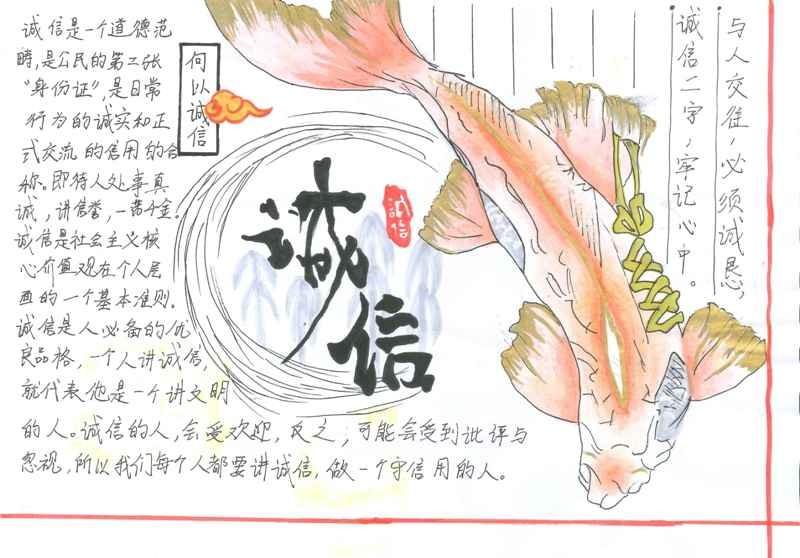 诚信是一个道德范
畴,是公民的第二张
“身份证”,是日常
行为的诚实和正
式交流的信用的合
称。即待人处事真
诚,讲信誉,一诺千金。
诚信是社会主义核
心价值观在个人层
面的一个基本准则。
诚信是人必备的优
良品格,一个人讲诚信,
就代表他是一个讲文明
的人。诚信的人,会受欢迎,反之,可能会受到批评与
忽视,所以我们每个人都要讲诚信,做一个守信用的人。
何以诚信
诚信
诚信
与人交往,必须诚恳,
诚信二字,牢记心中。